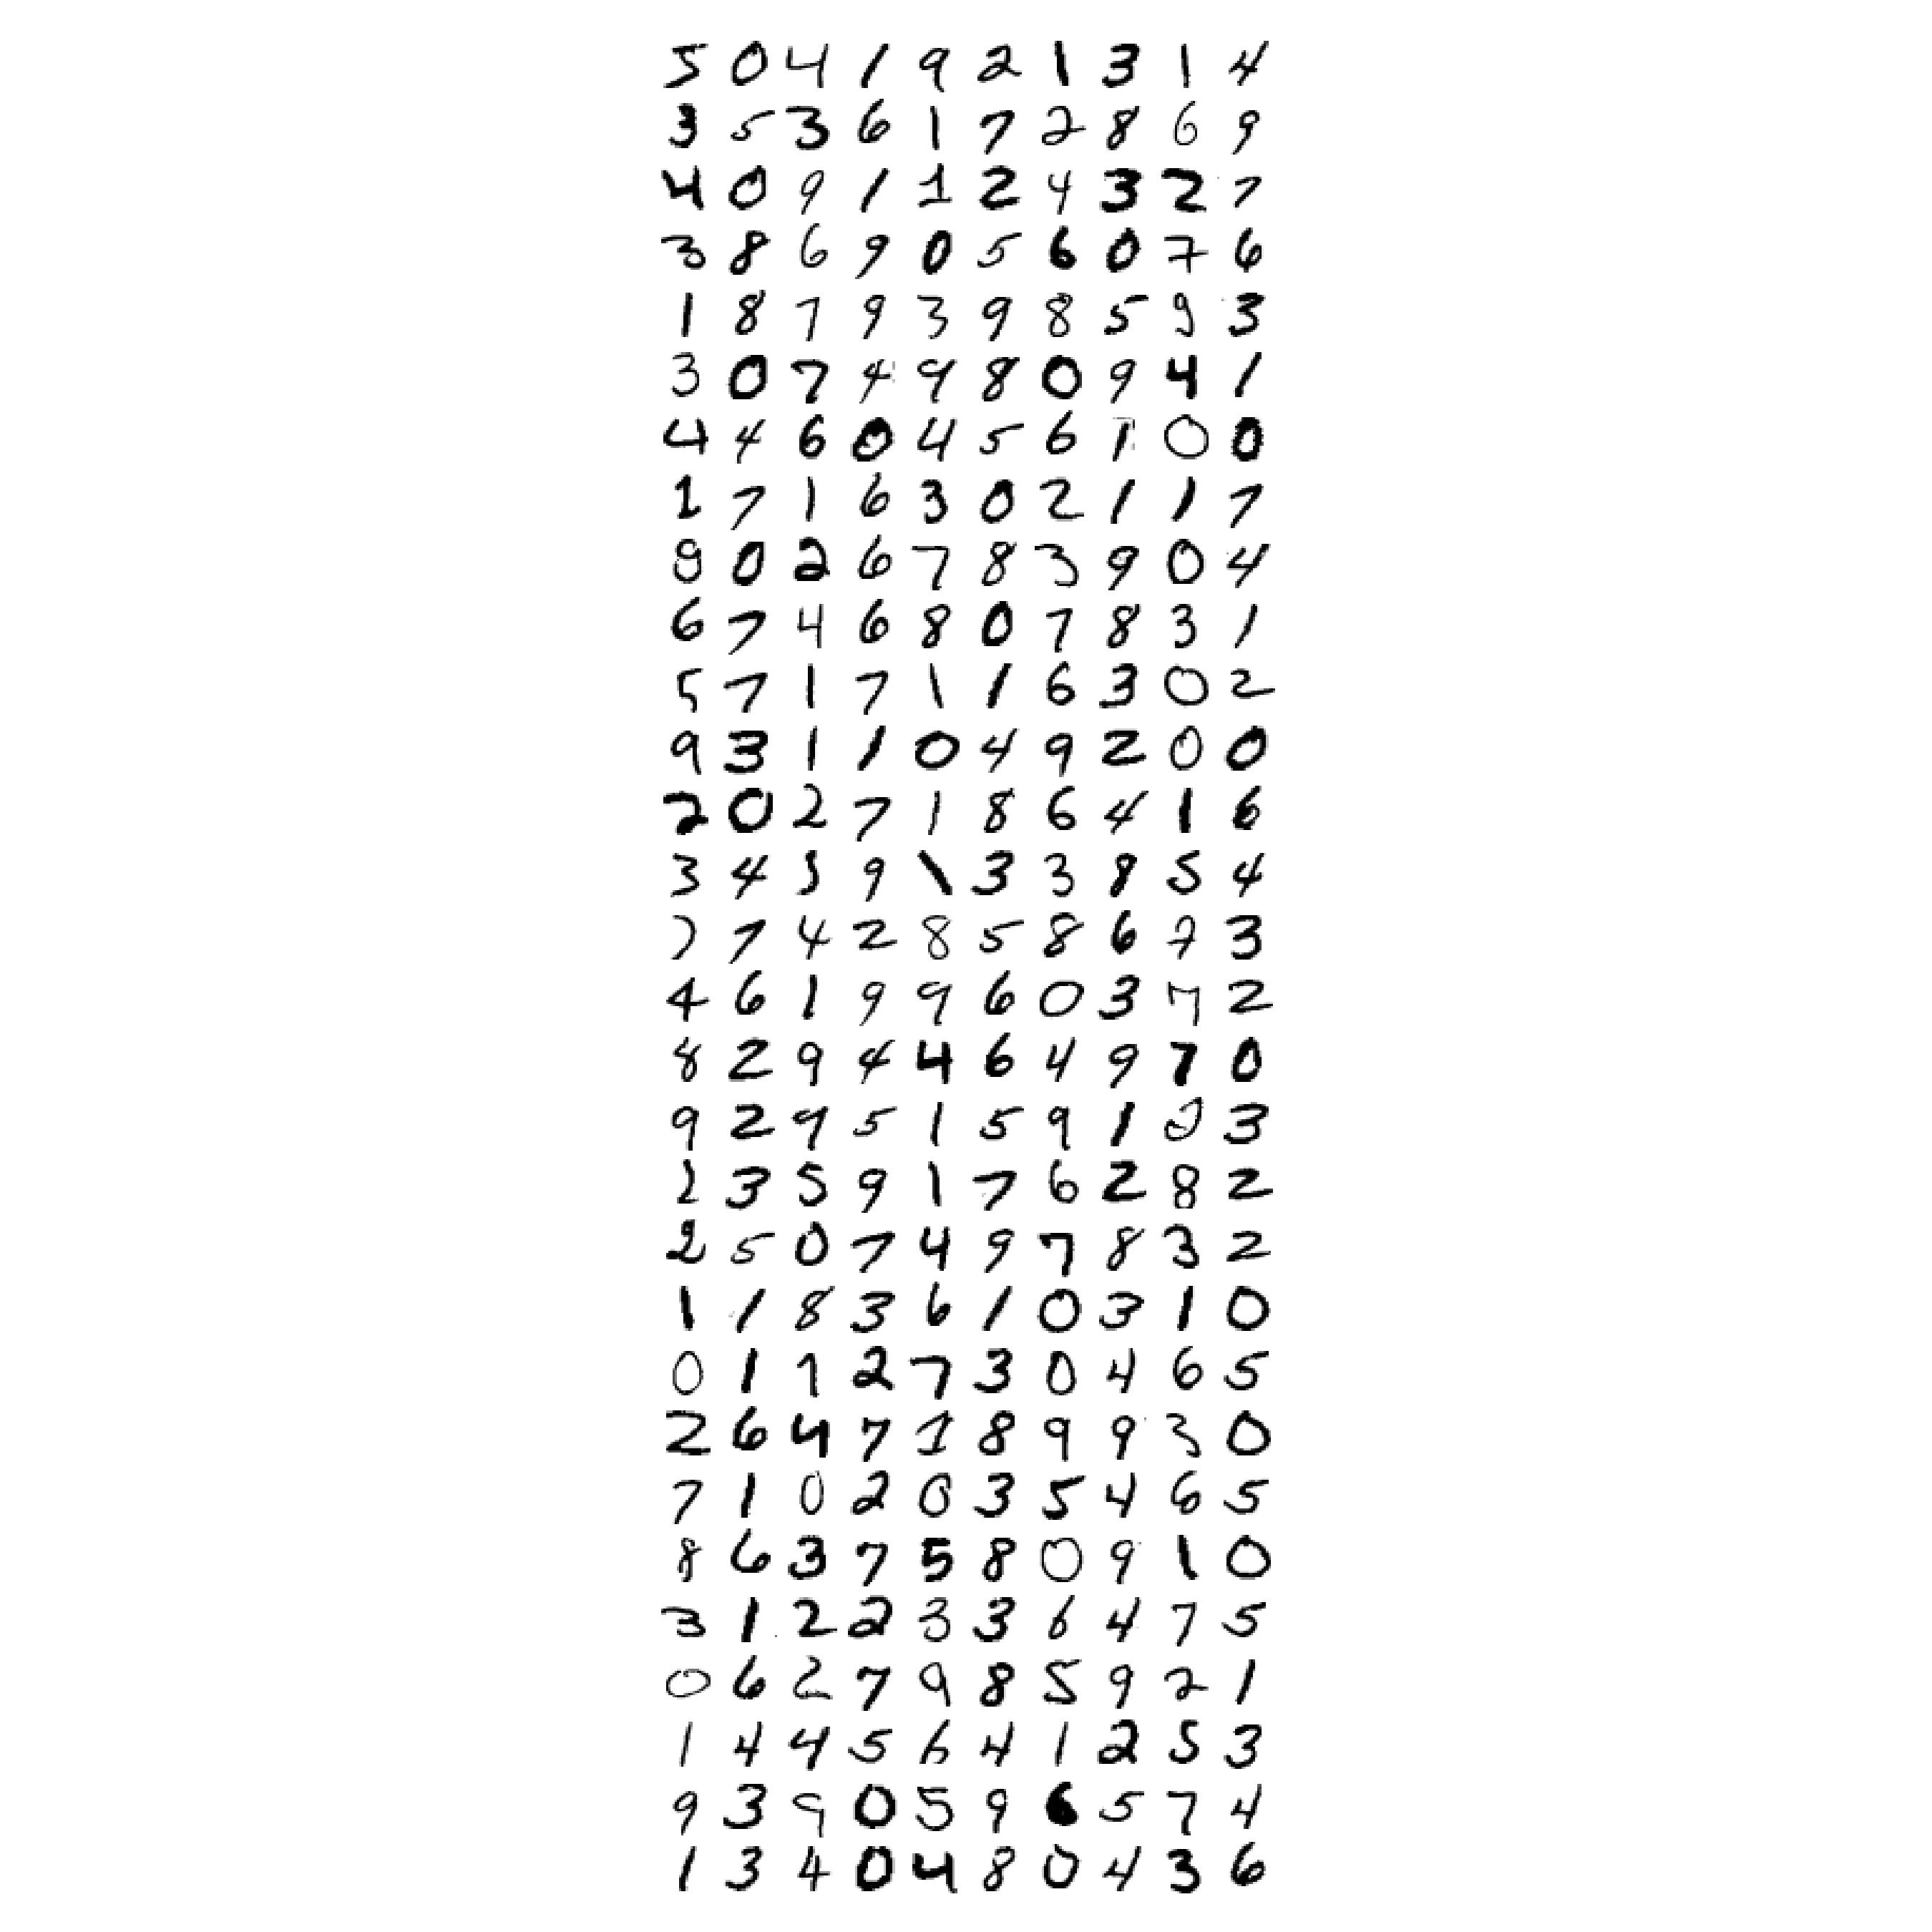 5 0 4 1 9 2 1 3 1 4
3 5 3 6 1 7 2 8 6 9
4 0 9 1 1 2 4 3 2 7
3 8 6 9 0 5 6 0 7 6
1 8 7 9 3 9 8 5 9 3
3 0 7 4 9 8 0 9 4 1
4 4 6 0 4 5 6 1 0 0
1 7 1 6 3 0 2 1 1 7
9 0 2 6 7 8 3 9 0 4
6 7 4 6 8 0 7 8 3 1
5 7 1 7 1 1 6 3 0 2
9 3 1 1 0 4 9 2 0 0
2 0 2 7 1 8 6 4 1 6
3 4 5 9 1 3 3 8 5 4
7 7 4 2 8 5 8 6 7 3
4 6 1 9 9 6 0 3 7 2
8 2 9 4 4 6 4 9 7 0
9 2 9 5 1 5 9 1 2 3
2 3 5 9 1 7 6 2 8 2
2 5 0 7 4 9 7 8 3 2
1 1 8 3 6 1 0 3 1 0
0 1 1 2 7 3 0 4 6 5
2 6 4 7 1 8 9 9 3 0
7 1 0 2 0 3 5 4 6 5
8 6 3 7 5 8 0 9 1 0
3 1 2 2 3 3 6 4 7 5
0 6 2 7 9 8 5 9 2 1
1 4 4 5 6 4 1 2 5 3
9 3 9 0 5 9 6 5 7 4
1 3 4 0 4 8 0 4 3 6